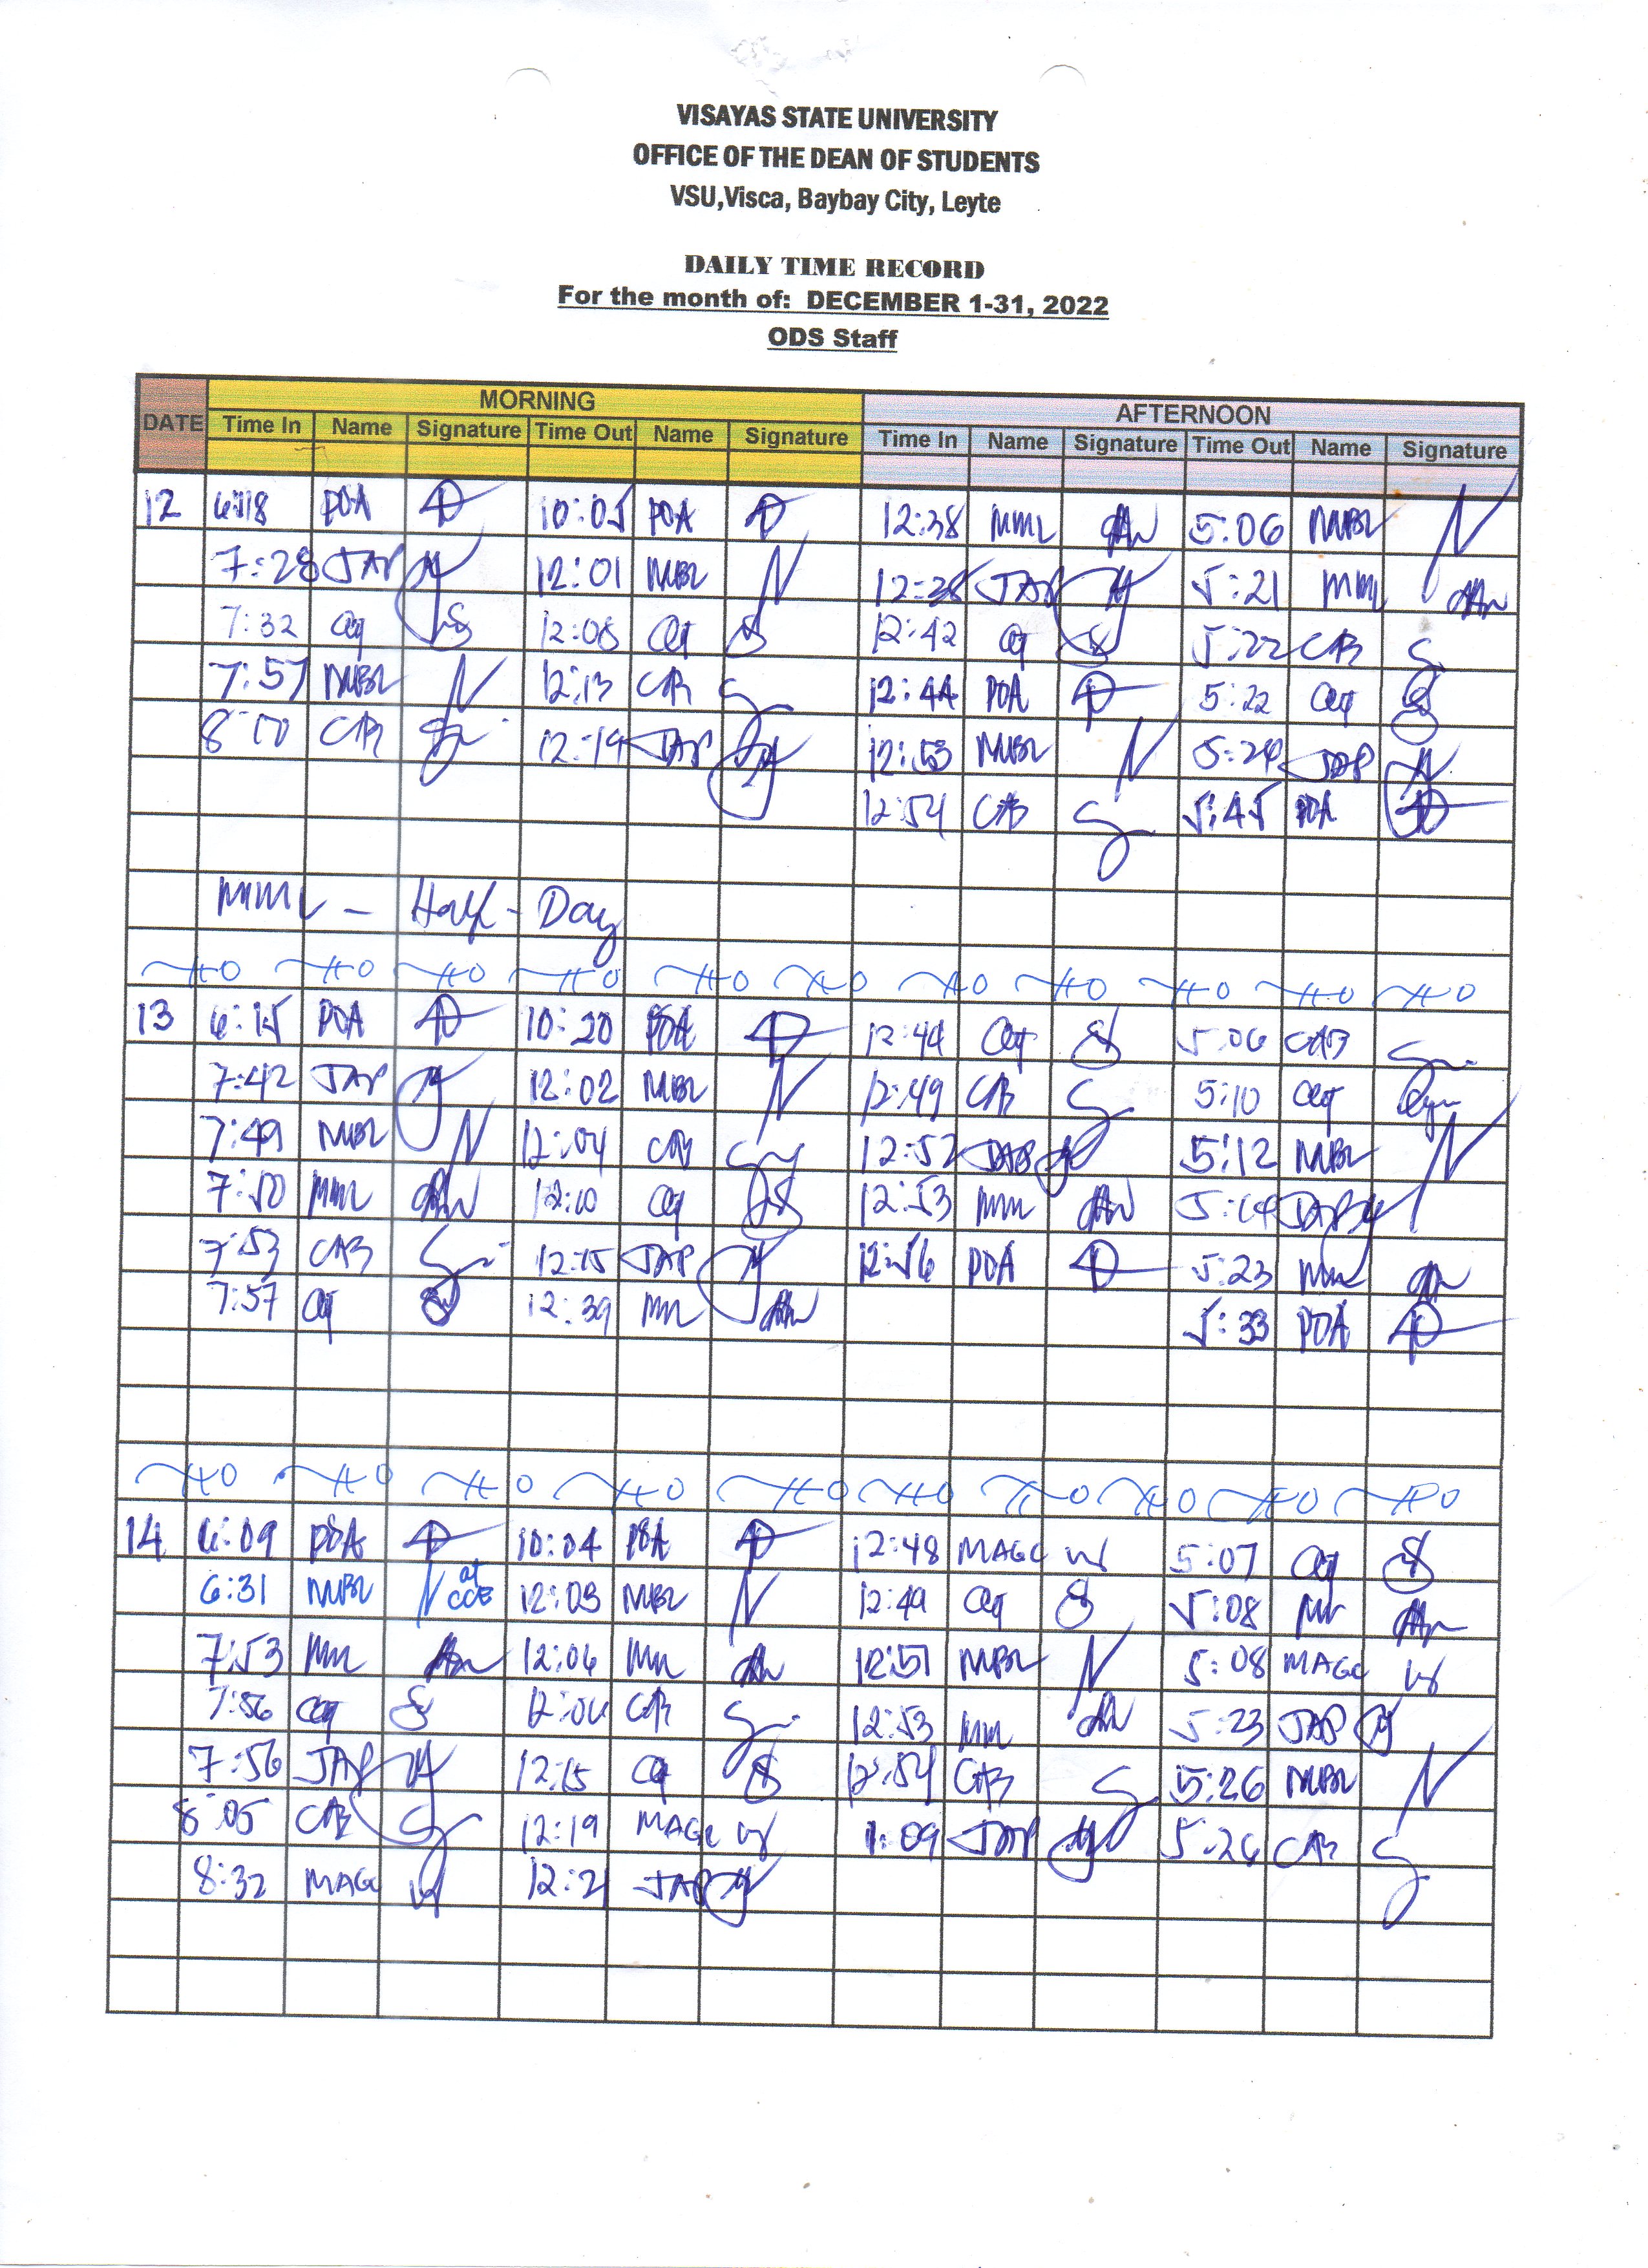 VISAYAS STATE UNIVERSITY
OFFICE OF THE DEAN OF STUDENTS
VSU,Visca, Baybay City, Leyte
DAILY TIME RECORD
For the month of: DECEMBER 1-31, 2022
ODS Staff
DATE MORNING AFTERNOON
Time In Name Signature Time Out Name Signature Time In Name Signature Time Out Name Signature
12 6:18 PDA 10:05 PDA 12:38 MML 5:06 MBL
7:28 JAP 12:01 MBL 12:38 JAP 5:21 MML
7:32 12:08 12:42 5:22 CAB
7:57 MBL 12:13 CAB 12:44 PDA 5:22
8:00 CAB 12:19 JAP 12:53 MBL 5:24 JAP
12:54 CAB 5:45 PDA
MML - Half - Day
13 6:15 PDA 10:20 PDA 12:44 5:06 CAB
7:42 JAP 12:02 MBL 12:49 CAB 5:10
7:49 MBL 12:04 CAB 12:52 JAP 5:12 MBL
7:50 MML 12:10 12:53 MML 5:14 JAP
7:53 CAB 12:15 JAP 12:56 PDA 5:23 MML
7:57 12:39 MML 5:33 PDA
14 6:09 PDA 10:04 PDA 12:48 MAGC 5:07
6:31 MBL at CCE 12:03 MBL 12:49 5:08 MML
7:53 MML 12:06 MML 12:51 MBL 5:08 MAGC
7:56 12:06 CAB 12:53 MML 5:23 JAP
7:56 JAP 12:15 12:54 CAB 5:26 MBL
8:05 CAB 12:19 MAGC 1:09 JAP 5:26 CAB
8:32 MAGC 12:21 JAP